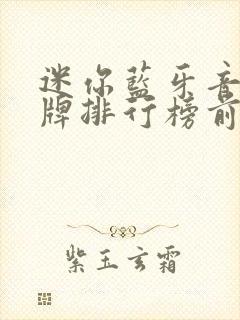 迷你藍牙音
牌排行榜前
紫玉玄霜